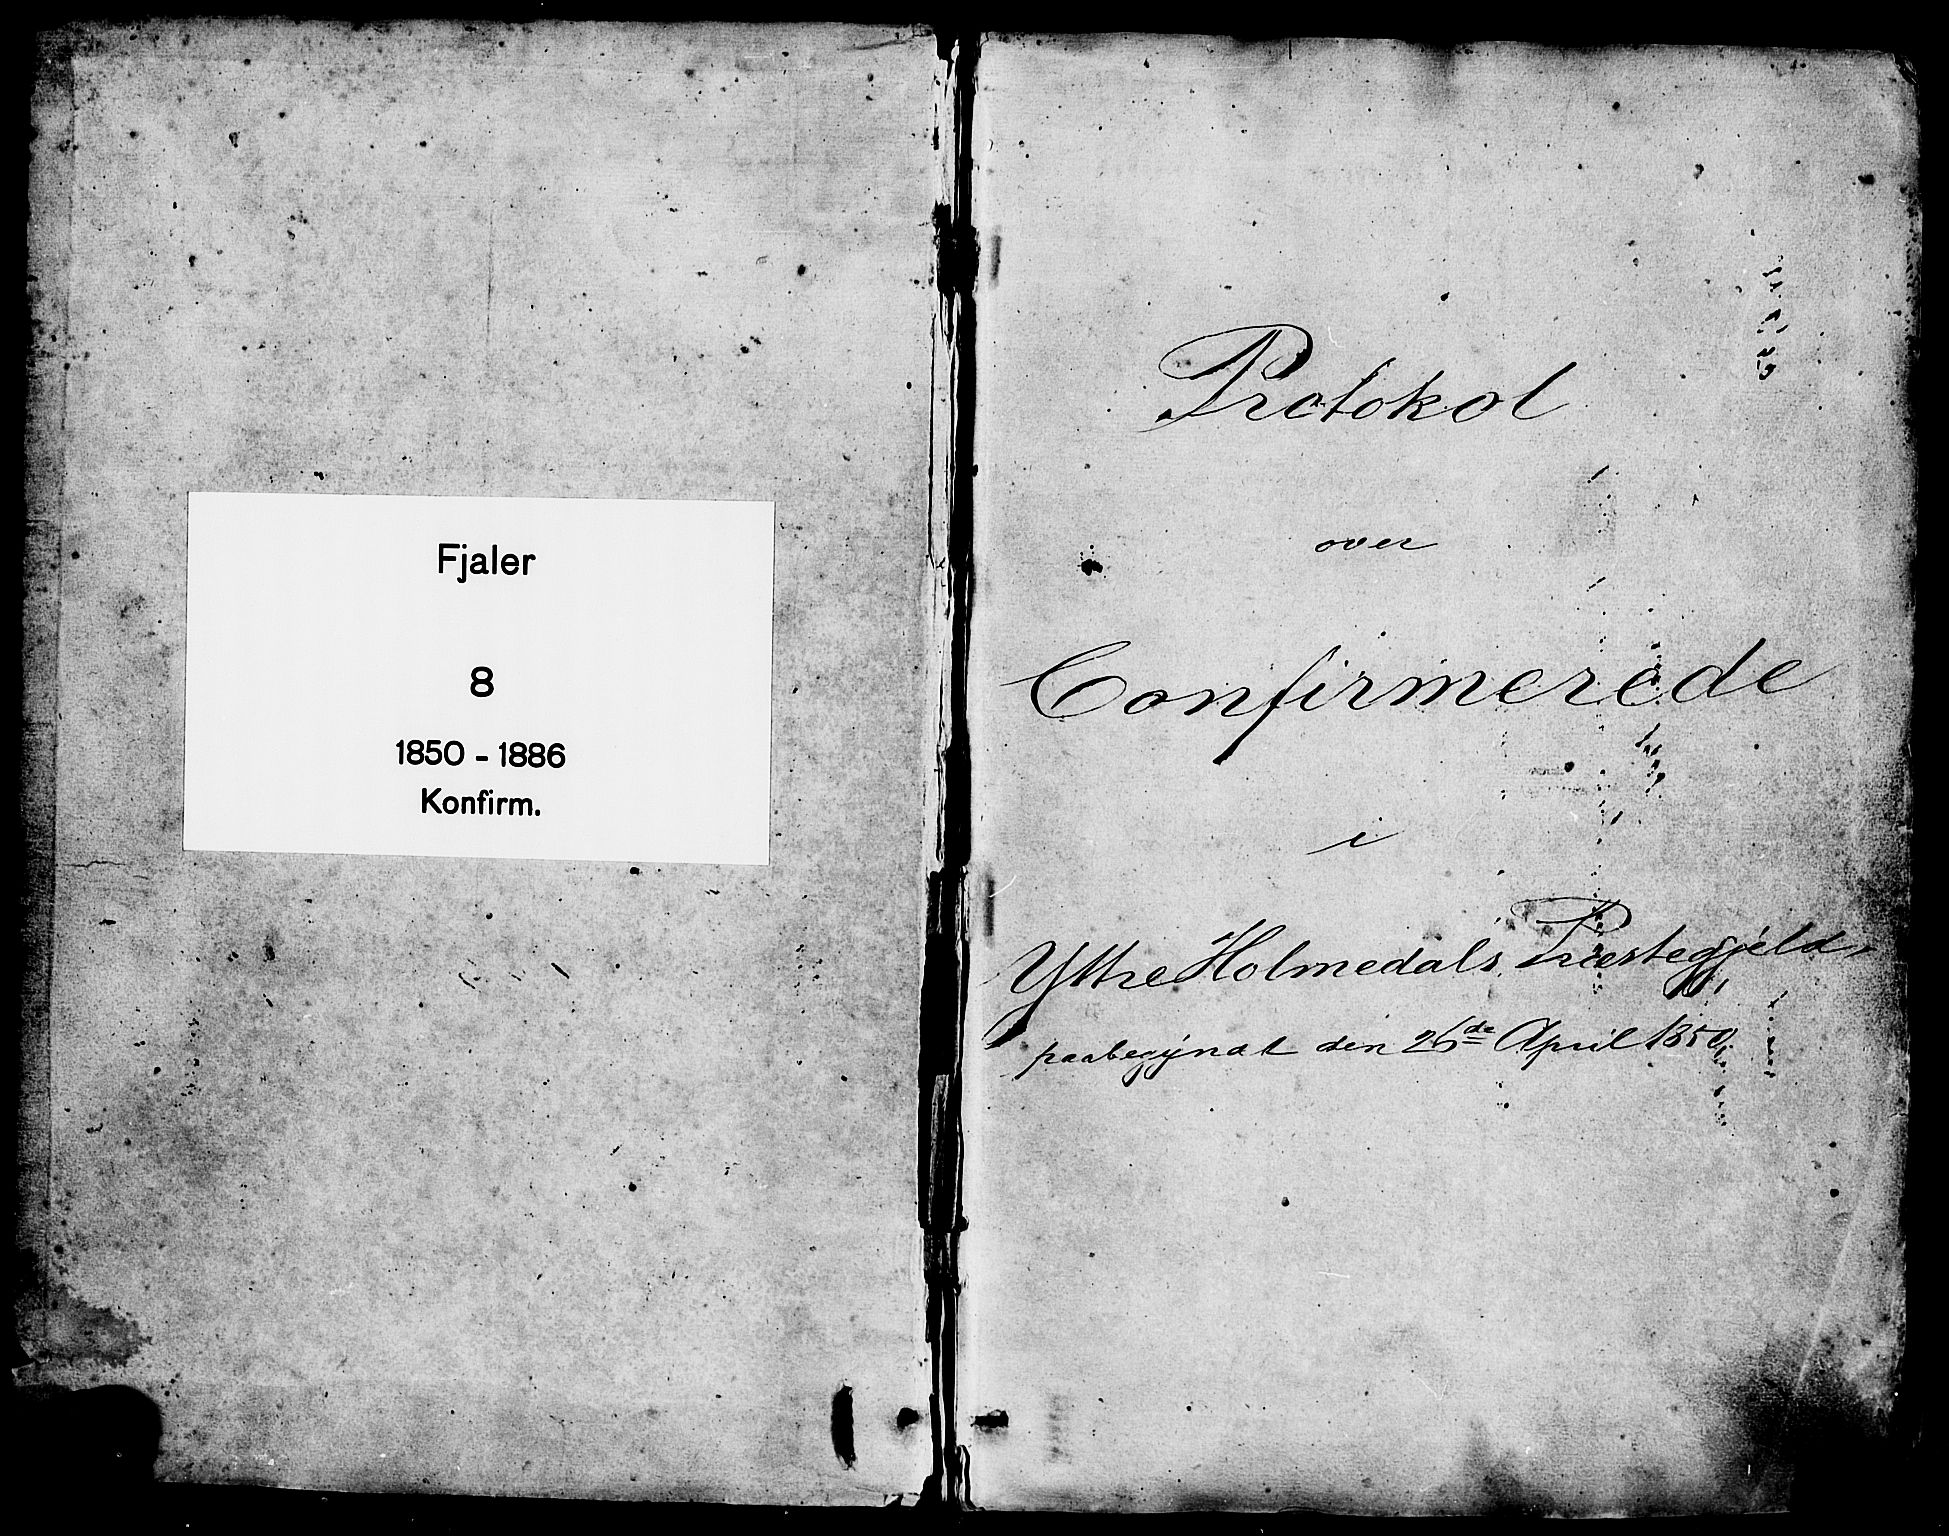 Fjaler
8
1850 - 1886
Konfirm.
Protokol
over
Confirmerede
i
Yttre Holmedals Præstegjeld,
paabegyndt den 26de April 1850